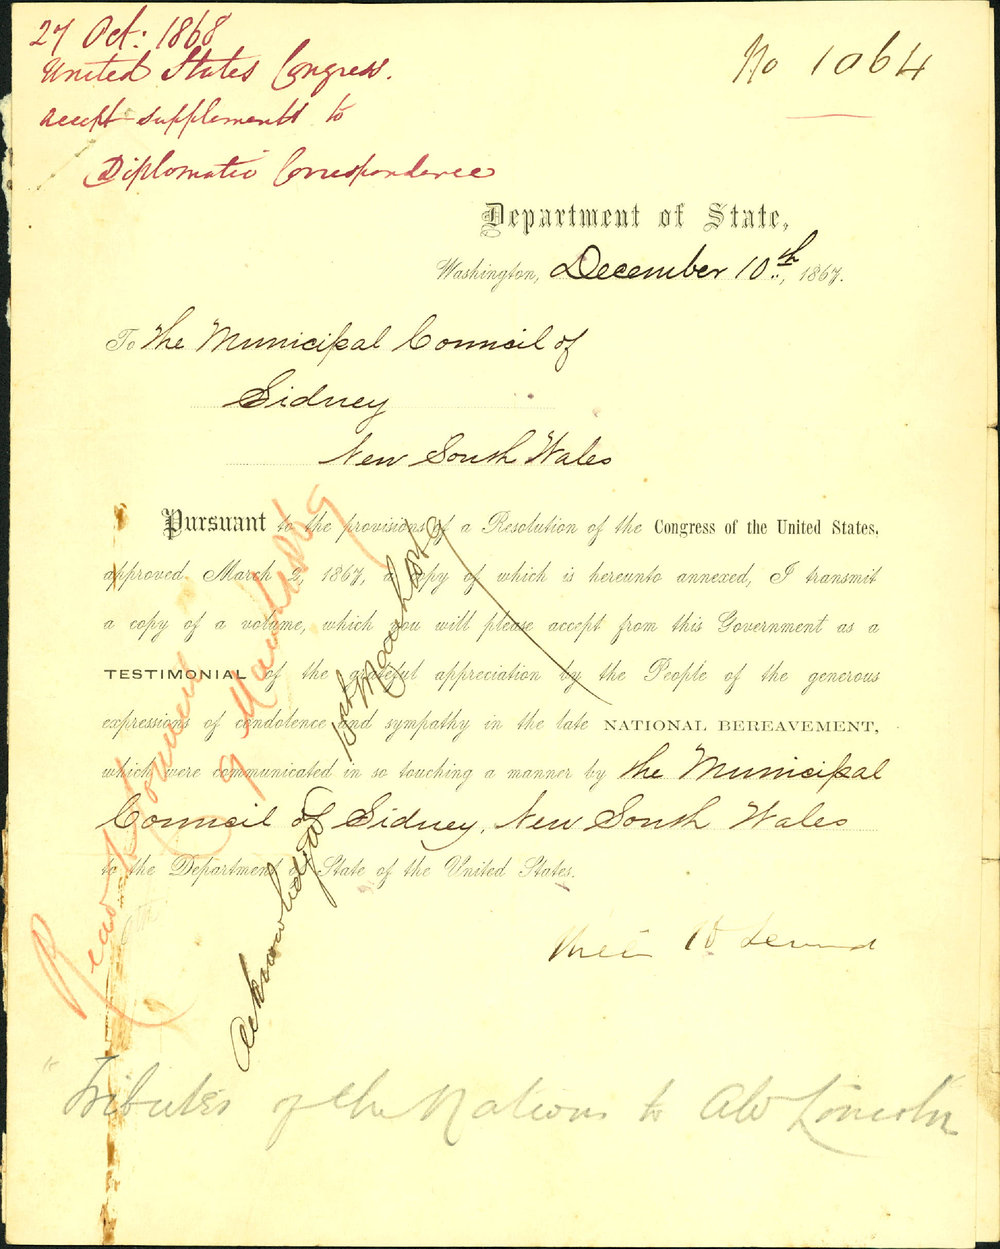 27 Oct: 1868
United States Congress.
accept supplements to
Diplomatic Correspondence
No 1064
Department of State,
Washington, December 10th, 1867.
To The Municipal Council of
Sidney
New South Wales
Pursuant to the provisions of a Resolution of the Congress of the United States,
approved March 2, 1867, a copy of which is hereunto annexed, I transmit
a copy of a volume, which you will please accept from this Government as a
TESTIMONIAL of the grateful appreciation by the People of the generous
expressions of condolence and sympathy in the late NATIONAL BEREAVEMENT,
which were communicated in so touching a manner by the Municipal
Council of Sidney, New South Wales
to the Department of State of the United States.
Read Council
9 March
Acknowledged
"Tributes of the Nations to Ab Lincoln"